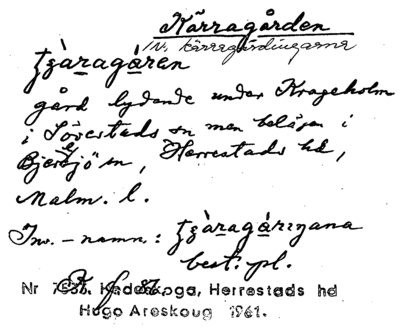 Kärragården
/Nr kärragårdingarna
tʒàragáren
gård lydande under Krageholm
i Sövestads sn men belägen i
Bjeresjö sn, Herrestads hd,
Malm. l.
Inv. - namn : tʒàragárıŋana
best. pl.
Nr Hedeskoga, Herrestads hd
Hugo Areskoug 1961.